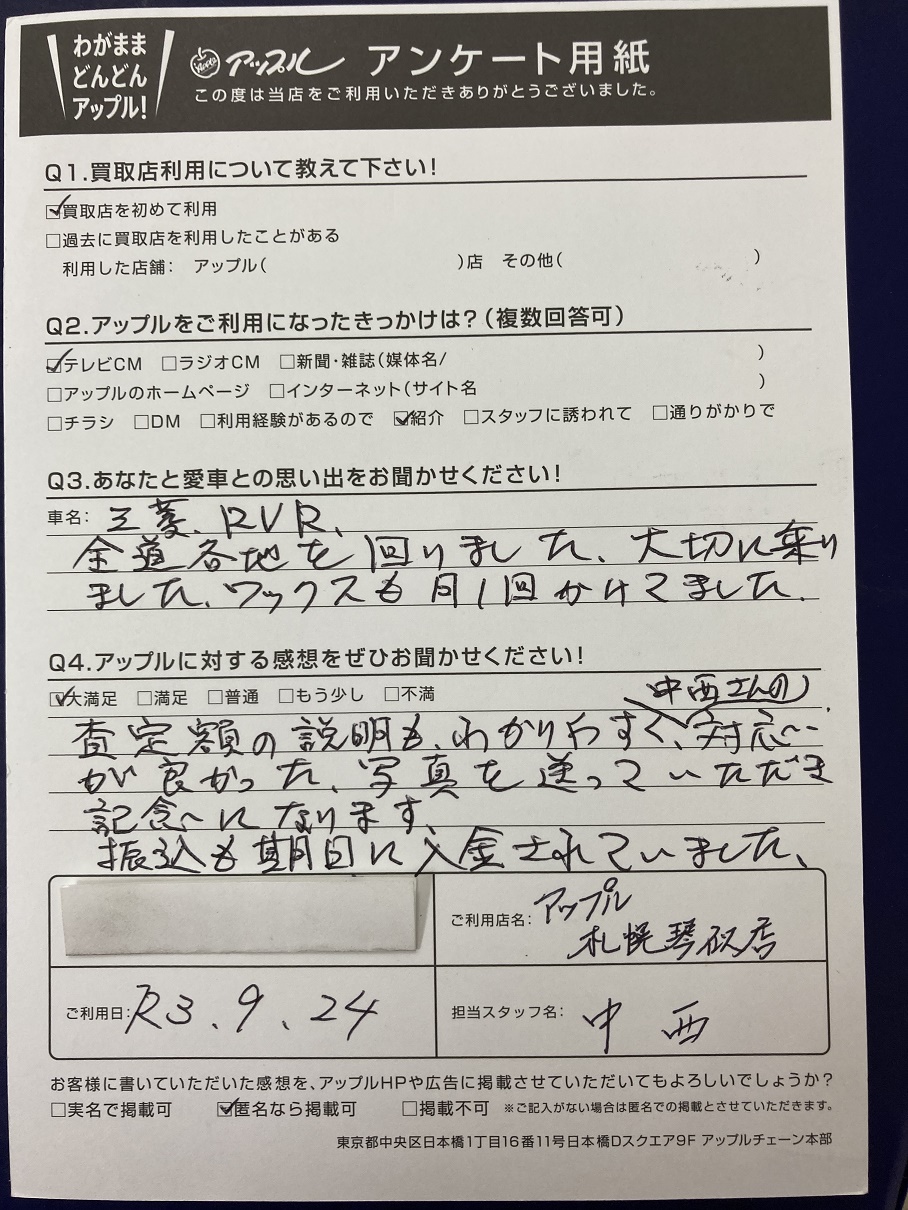 わがまま
どんどん
アップル!
アップル アンケート用紙
この度は当店をご利用いただきありがとうございました。
Q1.買取店利用について教えて下さい!
☑買取店を初めて利用
□過去に買取店を利用したことがある
利用した店舗: アップル( )店 その他( )
Q2.アップルをご利用になったきっかけは?(複数回答可)
☑テレビCM □ラジオCM □新聞・雑誌(媒体名/ )
□アップルのホームページ □インターネット(サイト名 )
□チラシ □DM □利用経験があるので ☑紹介 □スタッフに誘われて □通りがかりで
Q3.あなたと愛車との思い出をお聞かせください!
車名: 三菱、RVR、
全道各地を回りました、大切に乗り
ました、ワックスも月1回かけてました。
Q4.アップルに対する感想をぜひお聞かせください!
☑大満足 □満足 □普通 □もう少し □不満
中西さんの
査定額の説明も、わかりやすく、対応
が良かった、写真を送っていただき
記念になります、
振込も期日に入金されていました、
ご利用店名: アップル
札幌琴似店
ご利用日: R3.9.24
担当スタッフ名: 中西
お客様に書いていただいた感想を、アップルHPや広告に掲載させていただいてもよろしいでしょうか?
□実名で掲載可 ☑匿名なら掲載可 □掲載不可 ※ご記入がない場合は匿名での掲載とさせていただきます。
東京都中央区日本橋1丁目16番11号日本橋Dスクエア9F アップルチェーン本部